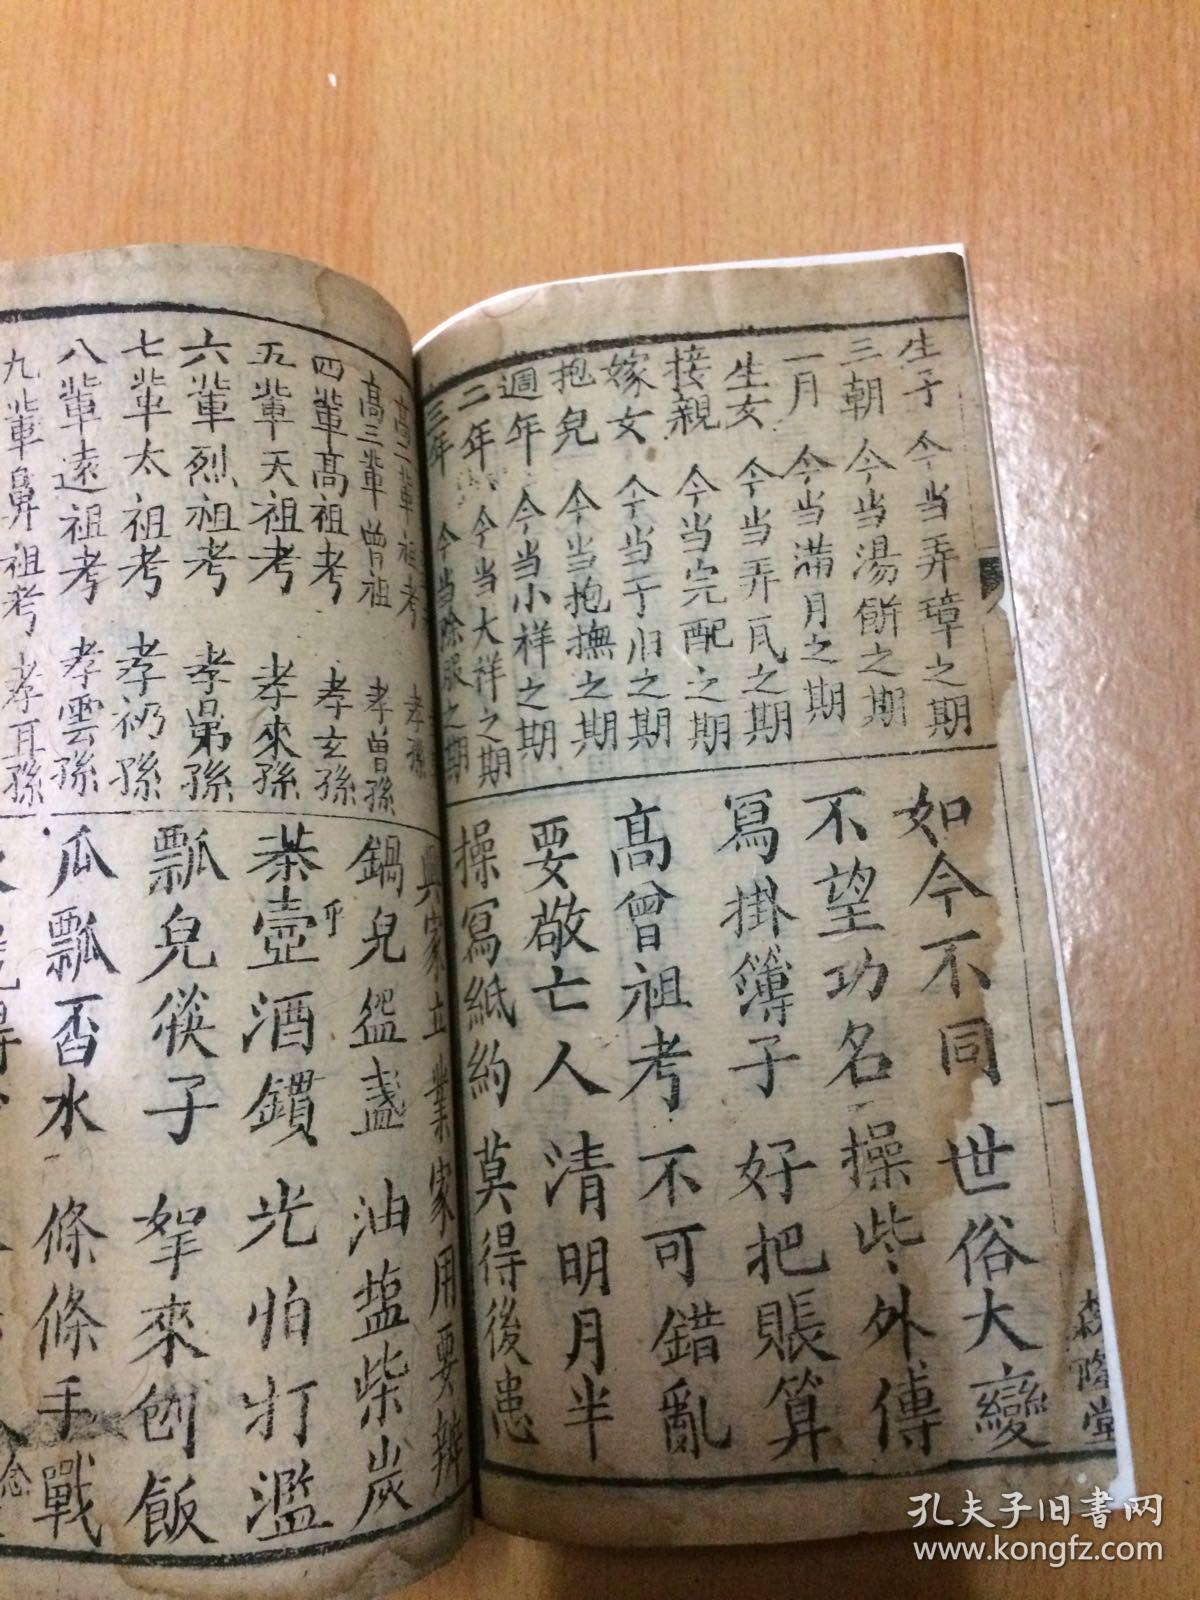 生子 今当弄璋之期
三朝 今当湯餅之期
一月 今当滿月之期
生女 今当弄瓦之期
接親 今当完配之期
嫁女 今当于归之期
抱兒 今当抱撫之期
週年 今当小祥之期
二年 今当大祥之期
三年 今当除服之期
如今不同 世俗大變
不望功名 操些外傳
寫掛簿子 好把賬算
高曾祖考 不可錯亂
要敬亡人 清明月半
操寫紙約 莫得後患
森隆堂
高二輩祖考 孝孫
高三輩曾祖 孝曾孫
四輩高祖考 孝玄孫
五輩天祖考 孝來孫
六輩烈祖考 孝晜孫
七輩太祖考 孝礽孫
八輩遠祖考 孝雲孫
九輩鼻祖考 孝耳孫
興家立業家用要辨
鍋兒盌盞 油塩柴炭
茶壺酒鑽 光怕打濫
瓢兒筷子 拏來刨飯
瓜瓢舀水 條條手戰
念
孔夫子旧书网
www.kongfz.com